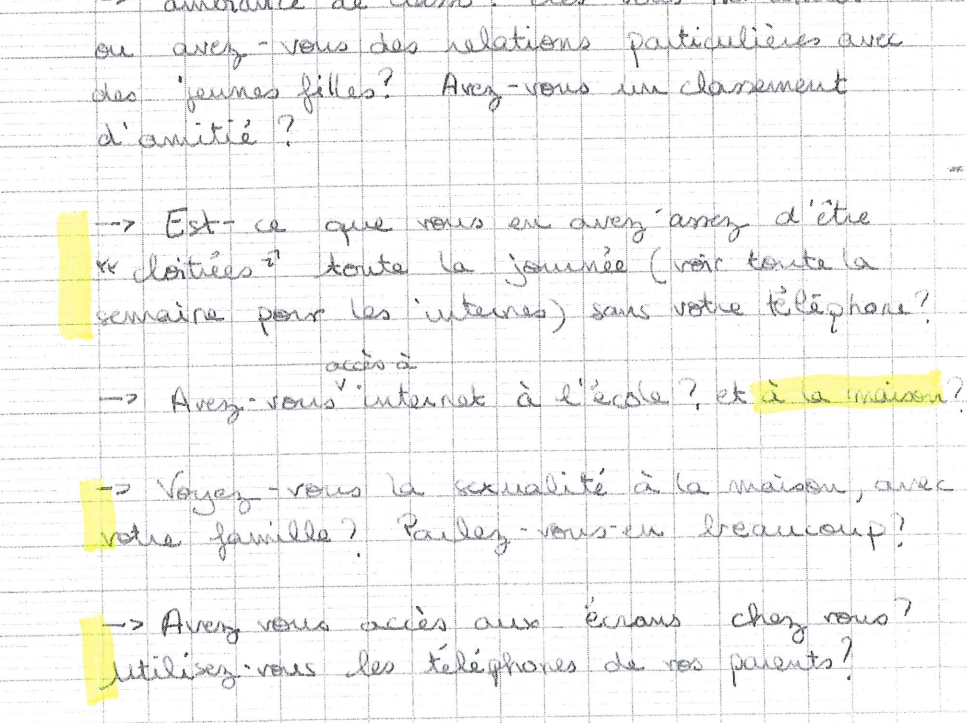 -> ambiance de classe ?
ou avez-vous des relations particulières avec
des jeunes filles? Avez-vous un classement
d'amitié ?
-> Est-ce que vous en avez assez d'être
"cloitrées" toute la journée (voir toute la
semaine pour les internes) sans votre téléphone?
accès à
-> Avez-vous internet à l'école?, et à la maison?
-> Voyez-vous la sexualité à la maison, avec
votre famille? Parlez-vous-en beaucoup?
-> Avez vous accès aux écrans chez vous?
Utilisez-vous les téléphones de vos parents?